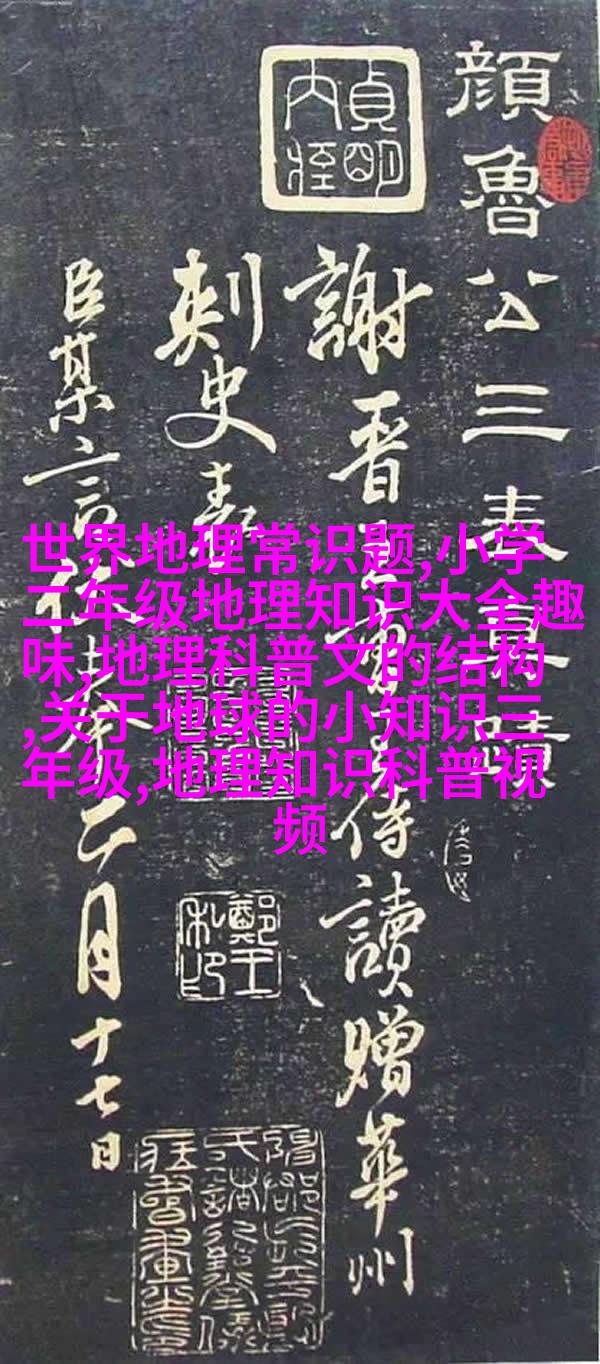 顔魯公三表真蹟
謝晉侍讀贈華州
刺史表
臣某言伏奉二月十七日
世界地理常识题,小学
二年级地理知识大全趣
味,地理科普文的结构
,关于地球的小知识三
年级,地理知识科普视
频